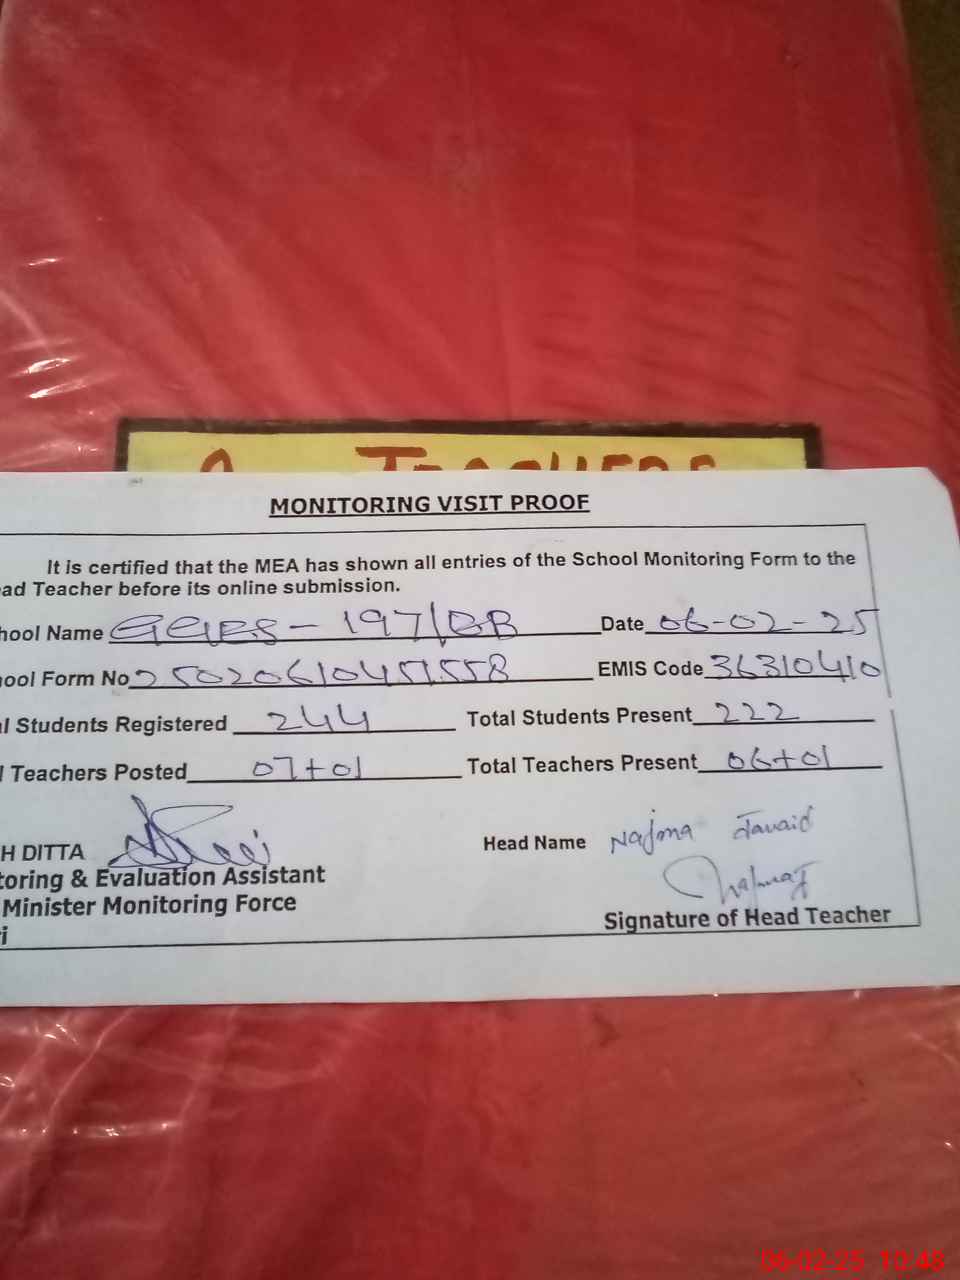 TEACHERS
MONITORING VISIT PROOF
It is certified that the MEA has shown all entries of the School Monitoring Form to the
ad Teacher before its online submission.
hool Name GGES - 197/EB Date 06-02-25
ool Form No 25020610451558 EMIS Code 36310410
l Students Registered 244 Total Students Present 222
l Teachers Posted 07+01 Total Teachers Present 06+01
H DITTA Head Name Najma Javaid
toring & Evaluation Assistant
Minister Monitoring Force Signature of Head Teacher
i
06-02-25 10:48